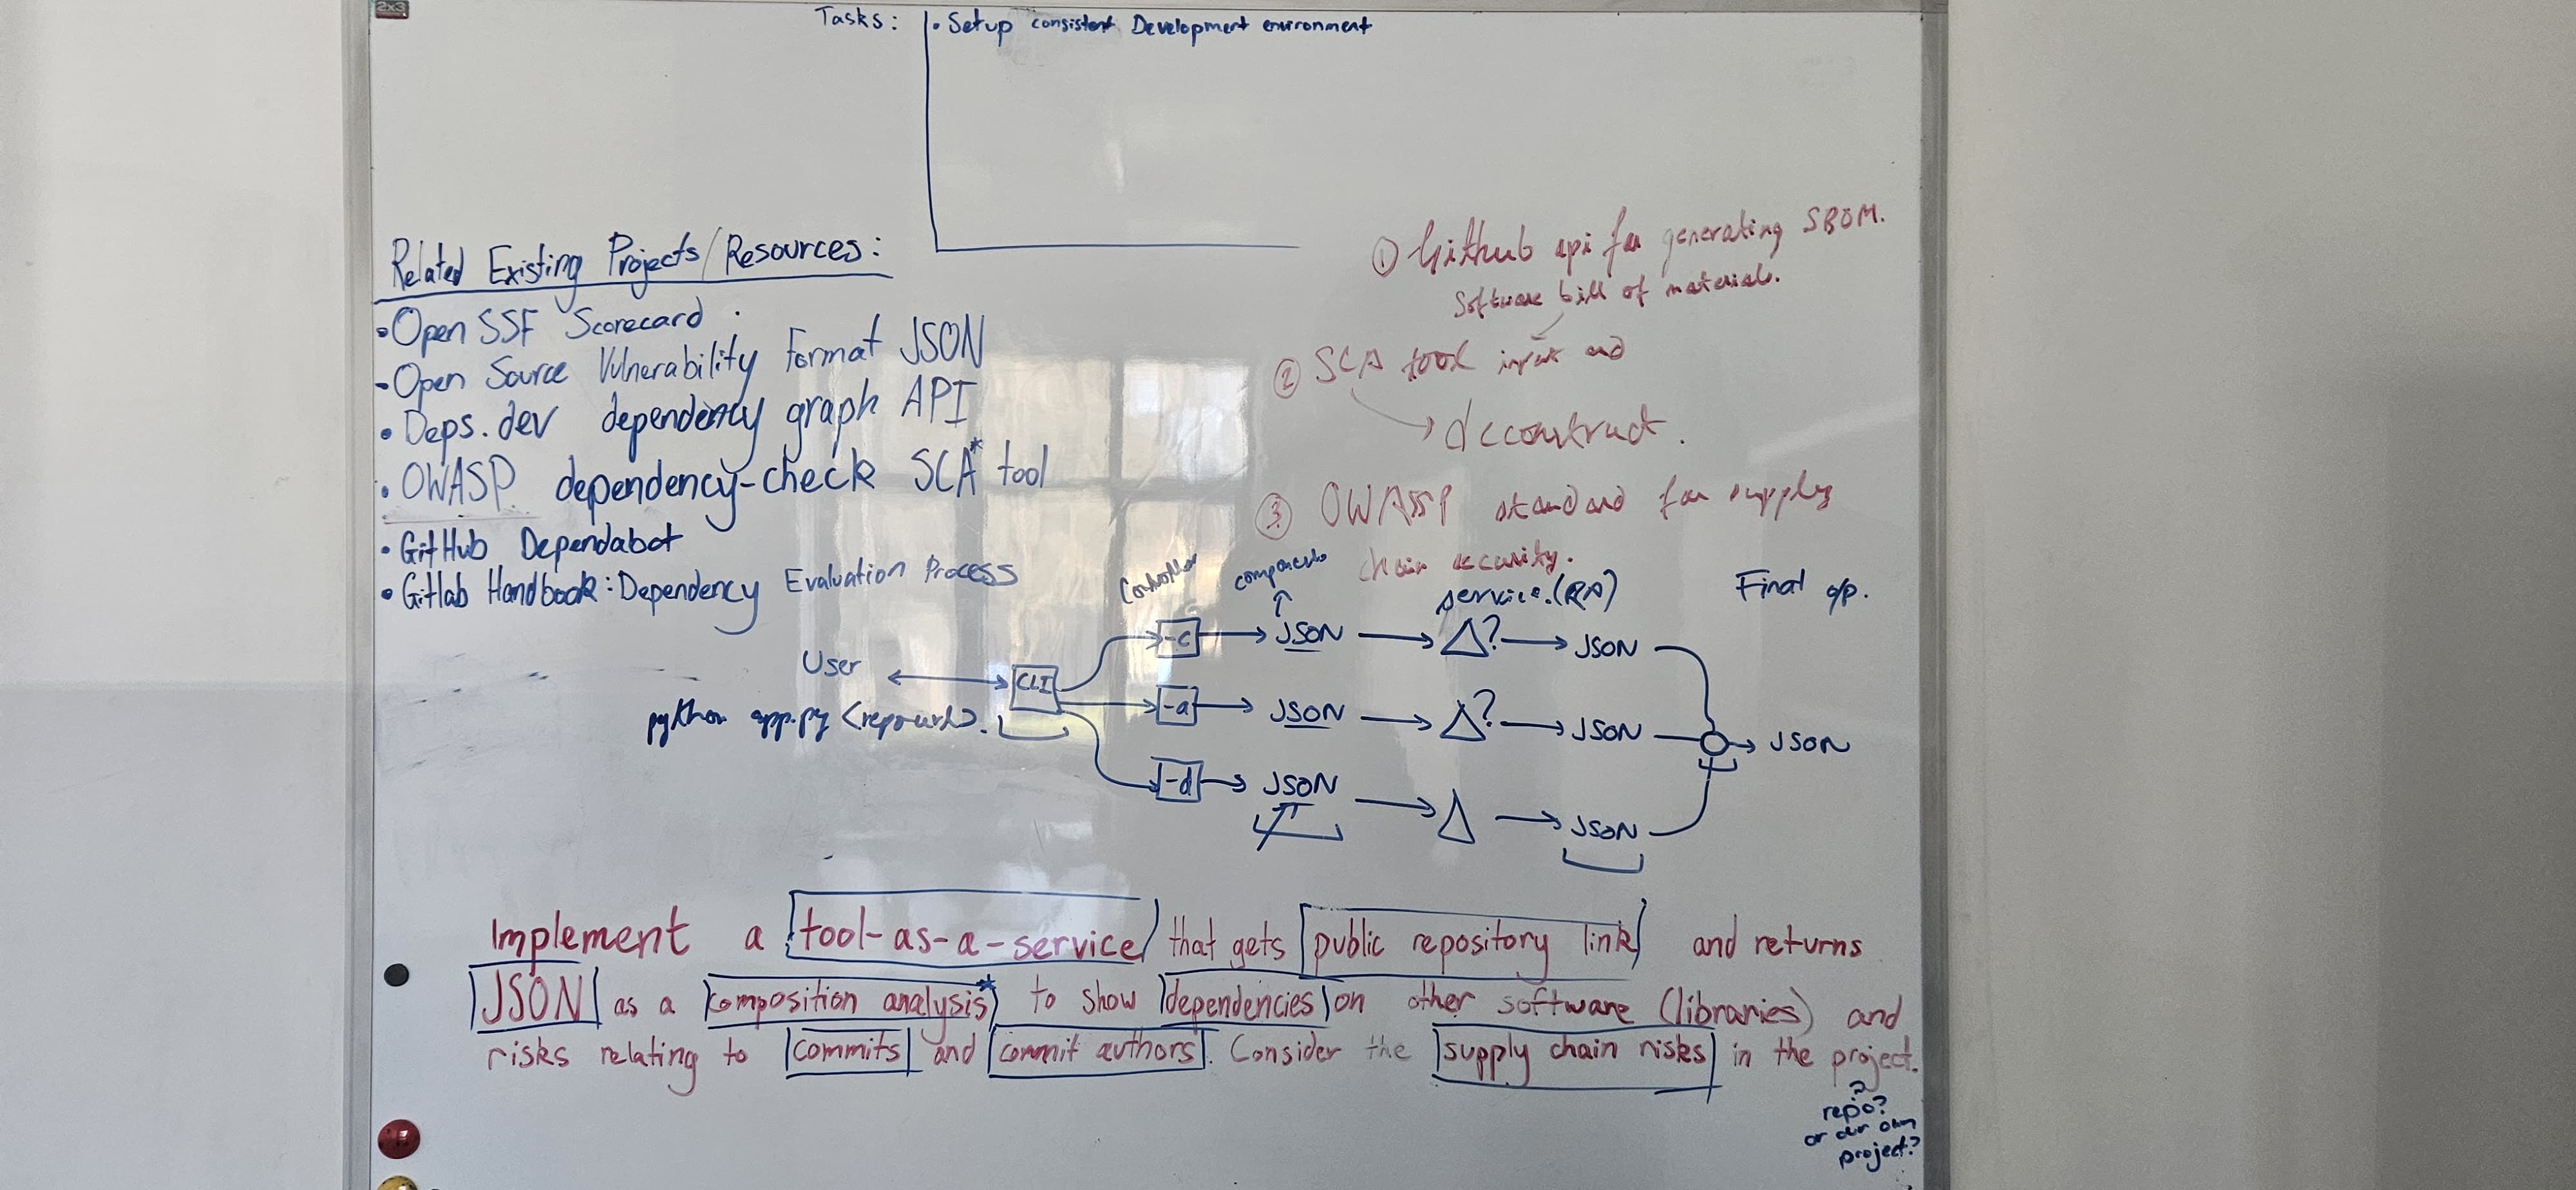 2x3
Tasks: • Setup consistent Development environment
Related Existing Projects/Resources:
• Open SSF Scorecard
- Open Source Vulnerability Format JSON
• Deps.dev dependency graph API
• OWASP dependency-check SCA* tool
• GitHub Dependabot
• Gitlab Handbook: Dependency Evaluation Process
① Github api for generating SBOM.
Software bill of materials.
② SCA tool input and
deconstruct.
③ OWASP standard for supply
chain security.
Controller components service.(RA) Final o/p.
User
python app.py <repo url>.
CLI
-c JSON ? JSON
-a JSON ? JSON JSON
-d JSON JSON
Implement a tool-as-a-service that gets public repository link and returns
JSON as a composition analysis* to show dependencies on other software (libraries) and
risks relating to commits and commit authors. Consider the supply chain risks in the project.
?
repo?
or our own
project?